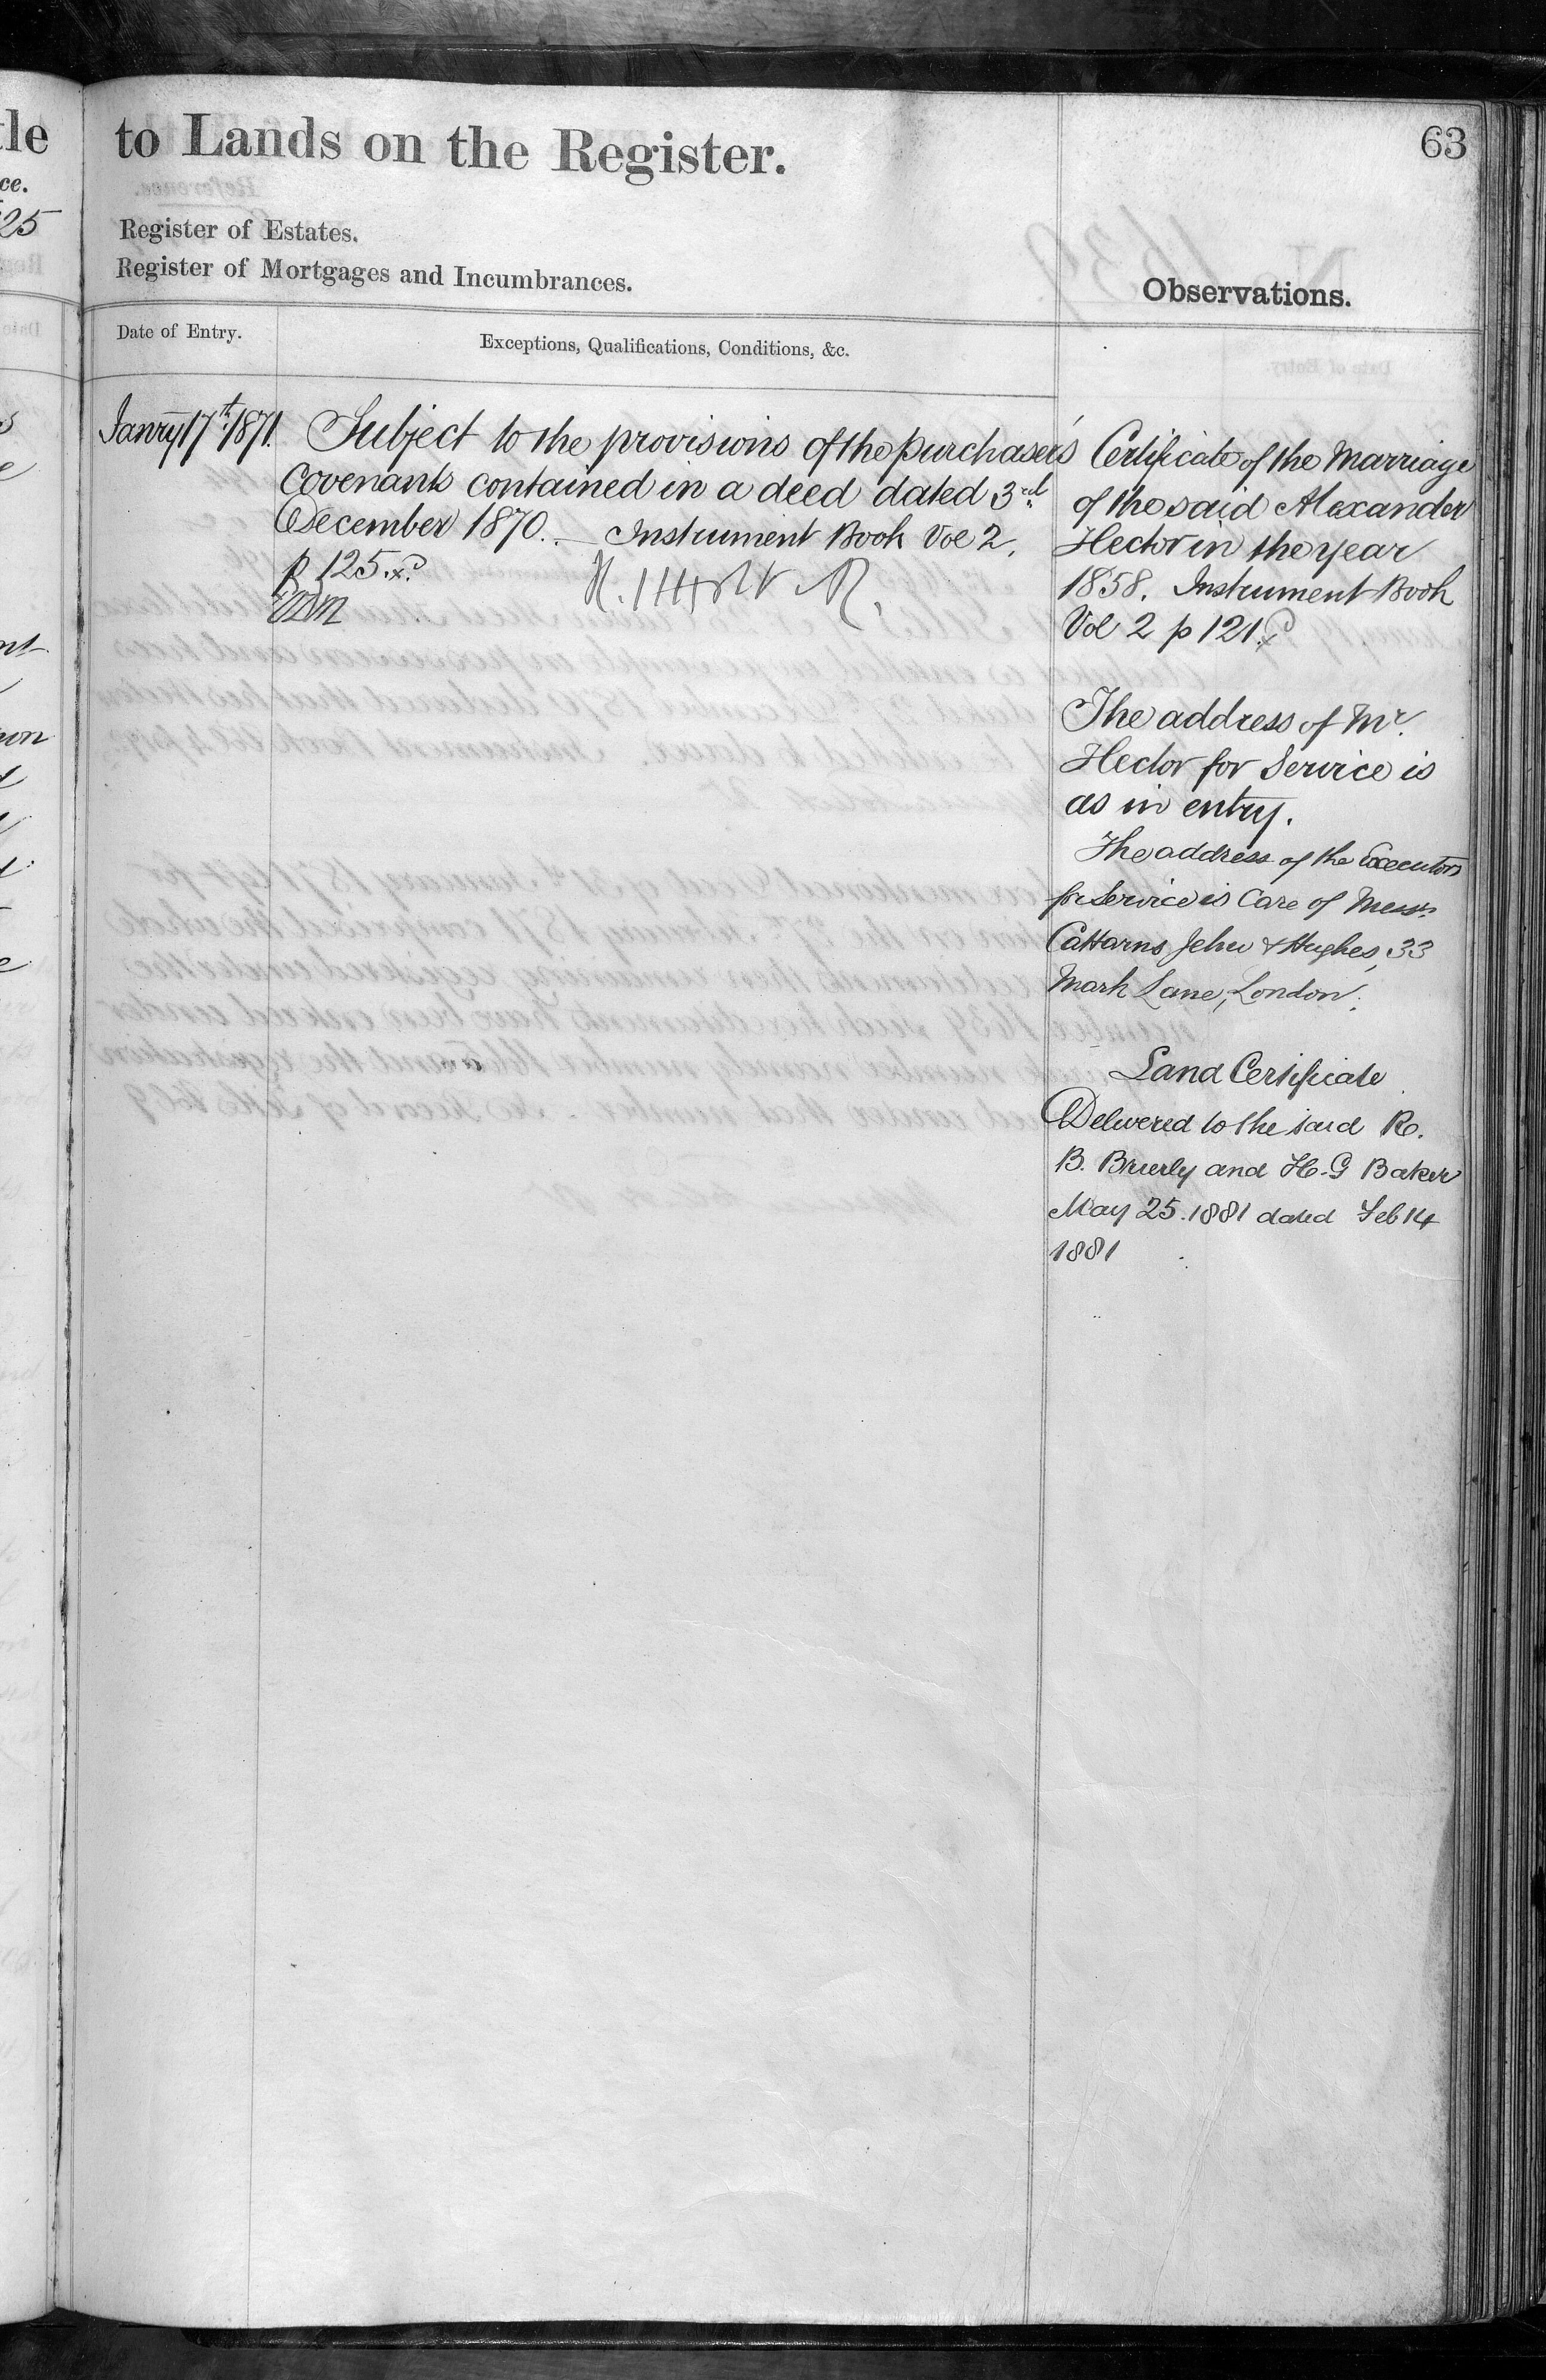 to Lands on the Register.
63
Register of Estates.
Register of Mortgages and Incumbrances.
Observations.
Date of Entry.
Exceptions, Qualifications, Conditions, &c.
Janry 17th 1871.
Subject to the provisions of the purchaser's
Covenants contained in a deed dated 3rd
December 1870. — Instrument Book Vol 2.
p 125.
Certificate of the Marriage
of the said Alexander
Hector in the year
1858. Instrument Book
Vol 2 p 121.
The address of Mr.
Hector for Service is
as in entry.
The address of the Executors
for Service is Care of Messrs
Cattarns Jehu & Hughes, 33
Mark Lane, London.
Land Certificate
Delivered to the said R.
B. Brierly and H. G Baker
May 25. 1881 dated Feb 14
1881